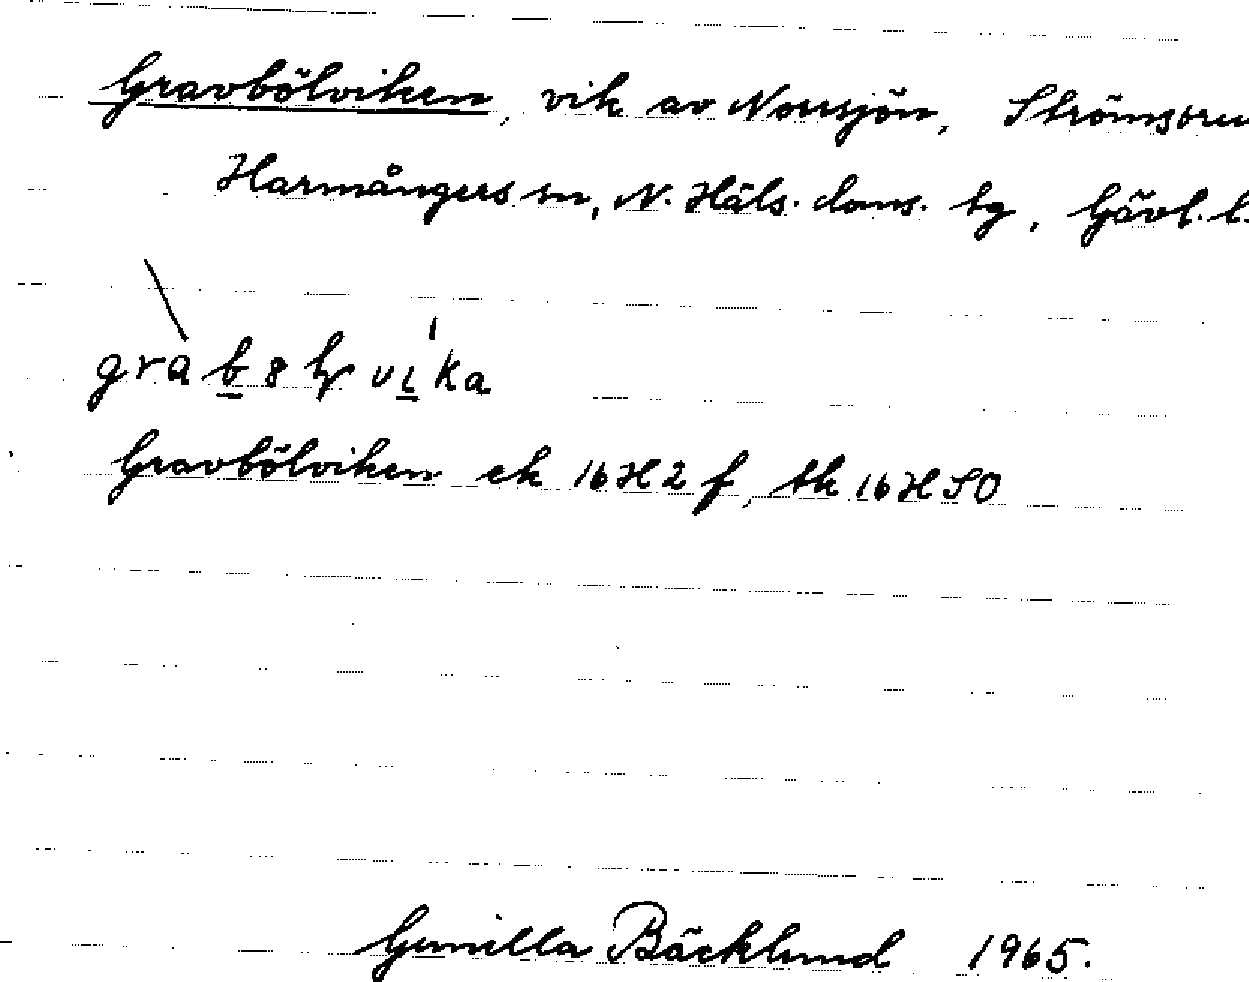 Gravbölviken, vik av Norrsjön, Strömsbru
Harmångers sn, N. Häls. doms. tg, Gävl. l.
Gravbölviken ek 16H2f, tk 16HSO
Gunilla Bäcklund 1965.